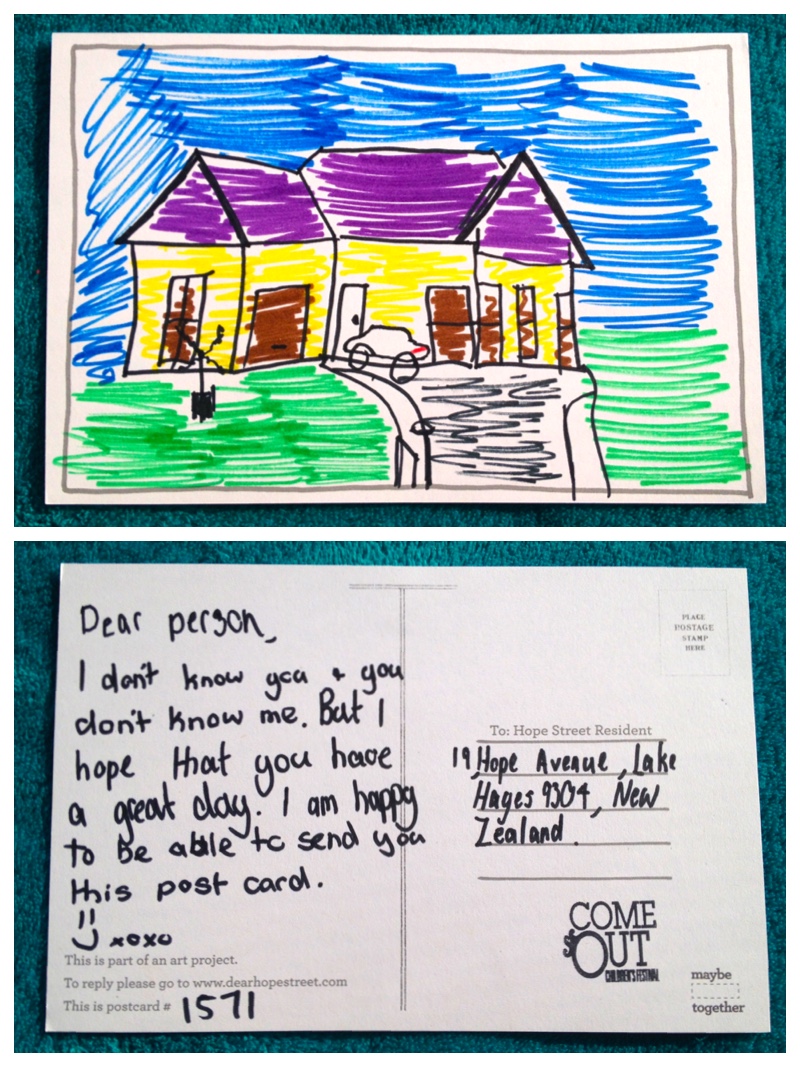 Dear person,
I don't know you + you
don't know me. But I
hope that you have
a great day. I am happy
to be able to send you
this post card.
xoxo
This is part of an art project.
To reply please go to www.dearhopestreet.com
This is postcard # 1571
PLACE
POSTAGE
STAMP
HERE
To: Hope Street Resident
19, Hope Avenue, Lake
Hayes 9304, New
Zealand.
COME
OUT
CHILDREN'S FESTIVAL
maybe
together